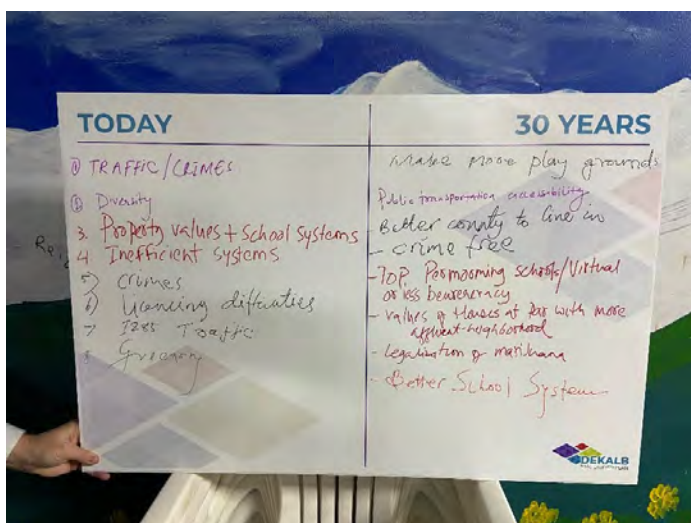 TODAY
① TRAFFIC/CRIMES
② Diversity
3. Property values + school systems
4 Inefficient systems
5) crimes
6) Licencing diffcuties
7 I285 Traffic
8
30 YEARS
Make more play grounds
Public transportation accessibility
- Better county to live in
- crime free
- TOP Permooming schools/Virtual
or less beurecracy
- values of Houses at par with more
affluent neighborhood
- legalization of marihana
- Better School System
DEKALB